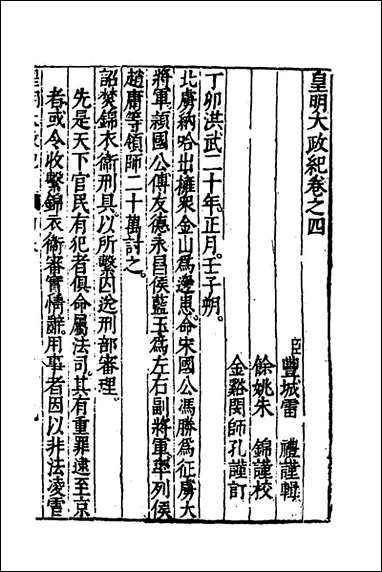 皇明大政紀卷之四
臣豐城雷　禮謹輯
餘姚朱　錦謹校
金谿閔師孔謹訂
丁卯洪武二十年。正月。壬子朔。
北虜納哈出擁衆金山爲邊患。命宋國公馮勝爲征虜大
將軍。潁國公傅友德永昌侯藍玉爲左右副將軍。率列侯
趙庸等領師二十萬討之。
詔焚錦衣衞刑具。以所繫囚送刑部審理。
先是天下官民有犯者俱命屬法司。其有重罪逮至京
者。或令收繫錦衣衞審實情辭。用事者因以非法凌虐